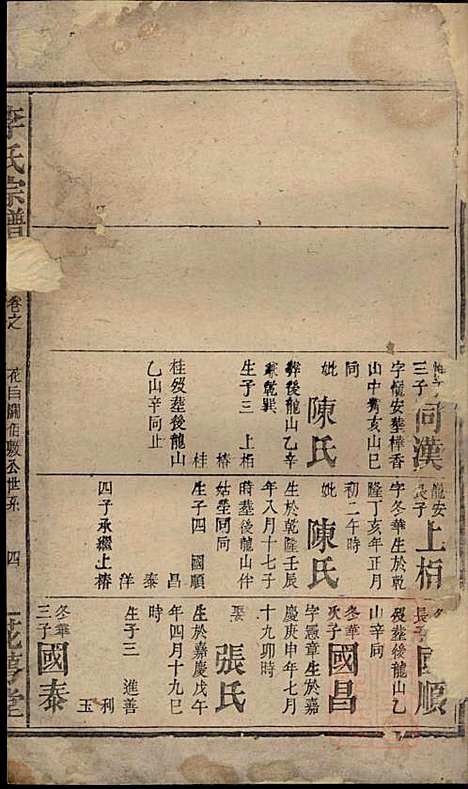 李氏宗譜
卷之
花白關伯敭公世系
四
三子
向漢
字龍安葬樟香
山中嘴亥山巳
同
妣
陳氏
葬後龍山乙辛
兼乾巽
生子三
上栢
椿
桂
桂歿葬後龍山
乙山辛向止
龍安
長子
上栢
字冬華生於乾
隆丁亥年正月
初二午時
妣
陳氏
生於乾隆壬辰
年八月十七子
時葬後龍山伴
姑塋同向
生子四
國順
昌
泰
洋
四子承繼上椿
長子
國順
歿葬後龍山乙
山辛向
冬華
次子
國昌
字憲章生於嘉
慶庚申年七月
十九卯時
娶
張氏
生於嘉慶戊午
年四月十九巳
時
生子三
進善
利
玉
冬華
三子
國泰